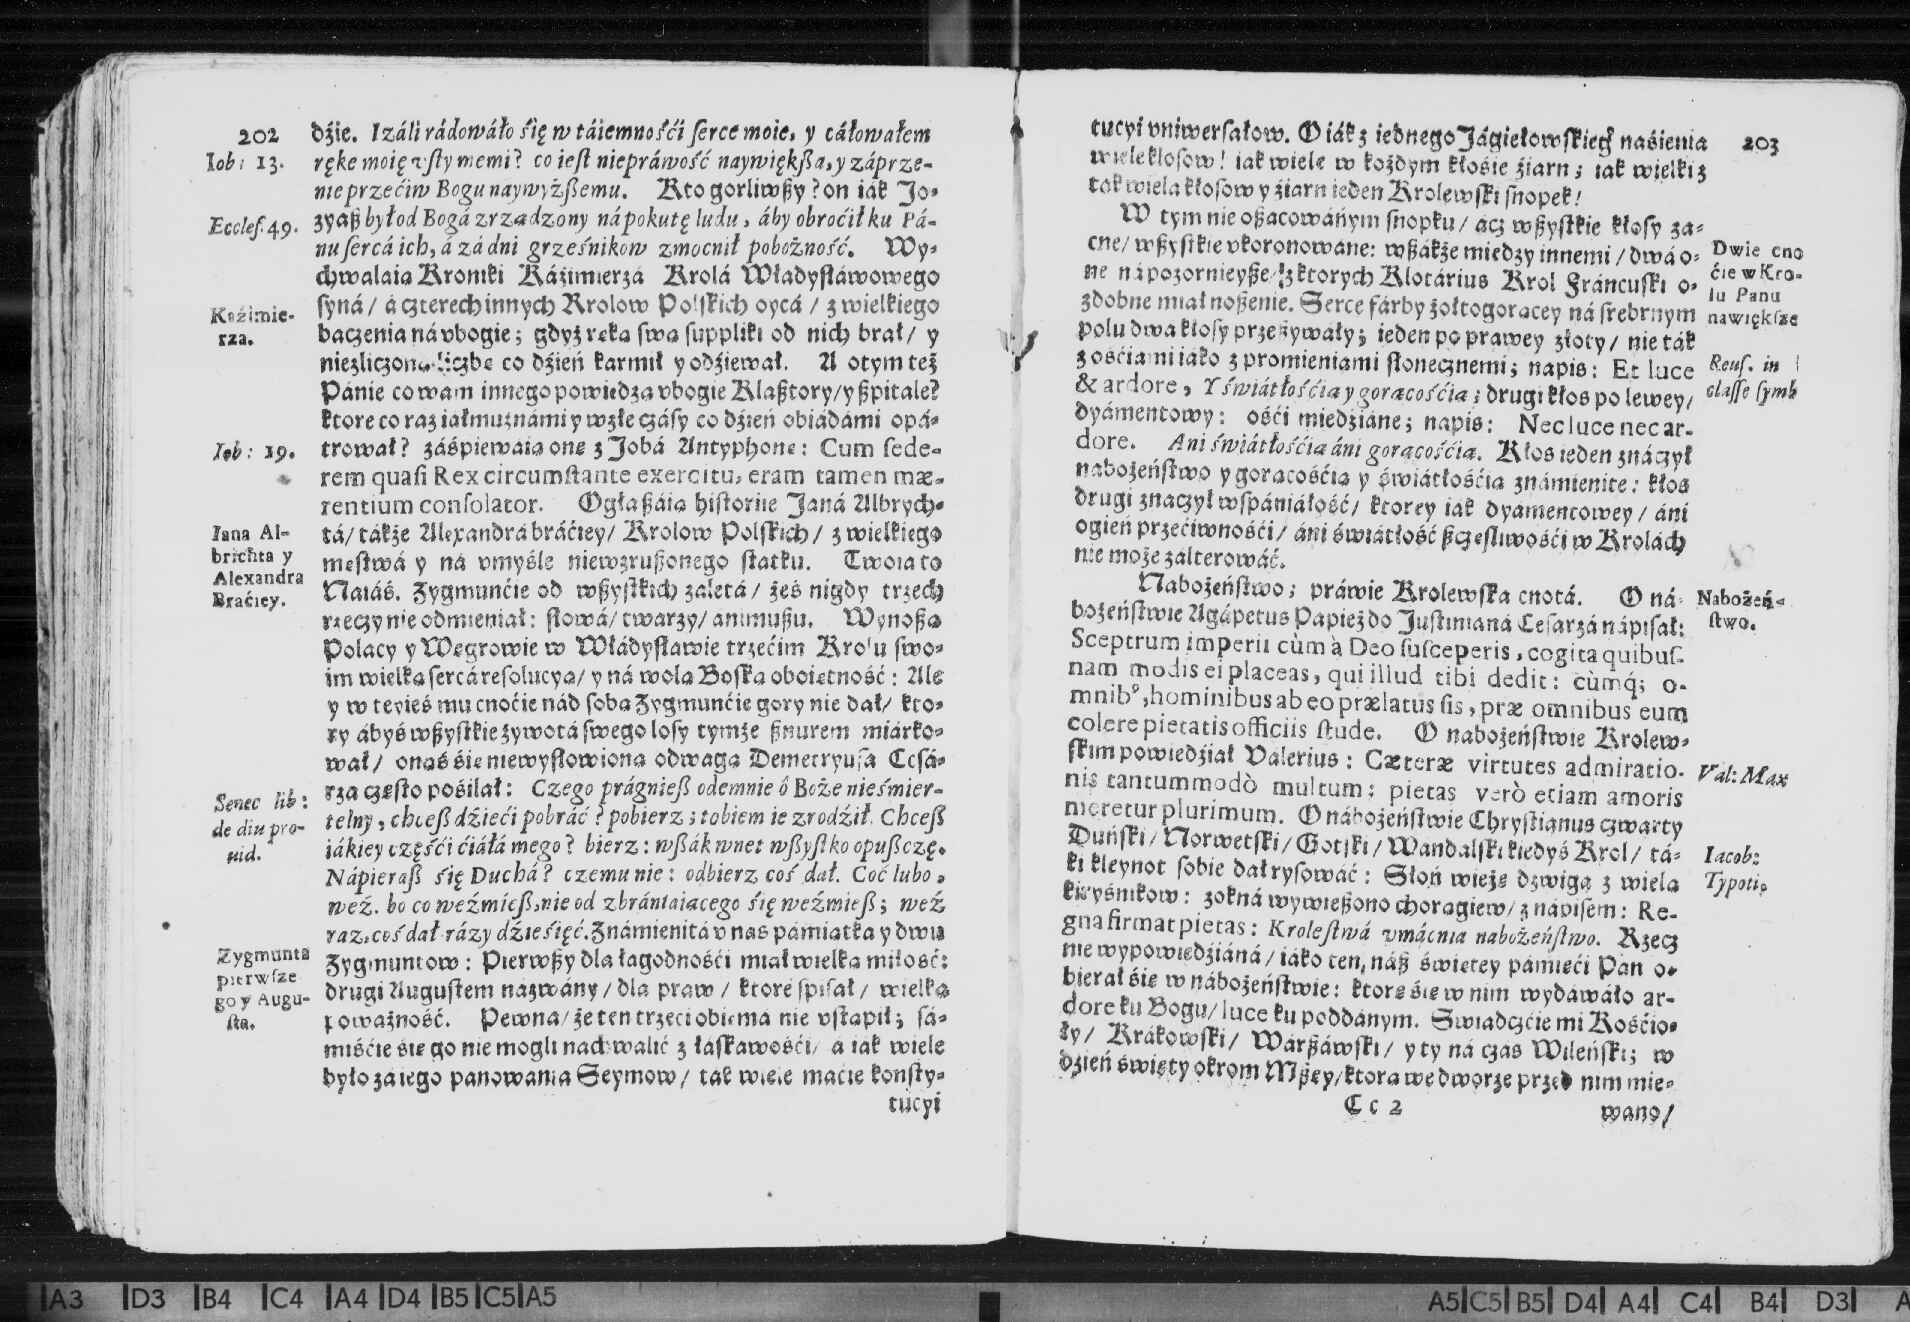 202
dźie. Izáli rádowáło śię w táiemnośći ſerce moie, y cáłowałem
Iob: 13.
rękę moię vſty memi? co ieſt niepráwość naywiękßa, y záprze-
nie przećiw Bogu naywyżßemu. Kto gorliwßy? on iák Jo-
Eccleſ. 49.
zyaß był od Bogá zrządzony ná pokutę ludu, áby obroćił ku Pá-
nu ſercá ich, á zá dni grześnikow zmocnił pobożność. Wy-
chwaláią Kroniki Káźimierzá Krolá Władyſłáwowego
Kaźimie-
rza.
ſyná / á czterech innych Krolow Polſkich oycá / z wielkiego
baczenia ná vbogie; gdyż ręką ſwą ſuppliki od nich brał / y
niezliczoną liczbę co dźień karmił y odźiewał. A o tym też
Pánie co wam innego powiedzą vbogie Klaßtory / y ßpitale?
ktore co raz iałmużnámi y w złe czáſy co dźień obiádámi opá-
Iob: 19.
trował? záśpiewáią one z Jobá Antyphonę: Cum ſede-
rem quaſi Rex circumſtante exercitu, eram tamen mæ-
rentium conſolator. Ogłaßáią hiſtorie Janá Albrych-
Iana Al-
brichta y
Alexandra
Braćiey.
tá / tákże Alexandrá bráćiey / Krolow Polſkich / z wielkiego
męſtwá y ná vmyśle niewzrußonego ſtatku. Twoiá to
Náiáś. Zygmunćie od wßyſtkich zaletá / żeś nigdy trzech
rzeczy nie odmieniał: ſłowá / twarzy / animußu. Wynoßą
Polacy y Węgrowie w Włádyſłáwie trzećim Krolu ſwo-
im wielką ſercá reſolucyą / y ná wolą Boſką oboiętność: Ale
y w teyieś mu cnoćie nád ſobą Zygmunćie gory nie dał / kto-
ry ábyś wßyſtkie żywotá ſwego loſy tymże ßnurem miárko-
wał / onąś śię niewyſłowioną odwagą Demetryuſa Ceſá-
Senec lib:
de diu pro-
uid.
rzá często pośilał: Czego prágnieß odemnie ô Boże nieśmier-
telny, chceß dźieći pobráć? pobierz; tobiem ie zrodźił. Chceß
iákiey częśći ćiáłá mego? bierz: wßák wnet wßyſtko opußczę.
Nápieraß śię Duchá? czemu nie: odbierz coś dał. Coć lubo,
weź. bo co weźmieß, nie od zbrániaiącego śię weźmieß; weź
raz, coś dał rázy dźieśięć. Známienitá v nas pámiątká y dwu
Zygmunta
pierwſze
go y Augu-
ſta.
Zygmuntow: Pierwßy dla łagodnośći miał wielką miłość:
drugi Auguſtem názwány / dla praw / ktore ſpiſał / wielką
poważność. Pewna / że ten trzeci obiema nie vſtąpił; ſá-
miśćie śię go nie mogli náchwalić z łáſkawośći / á iák wiele
było zá iego pánowánia Seymow / ták wiele maćie konſty-
tucyi
203
tucyi vniwerſałow. O iák z iednego Jágiełowſkiego naśienia
wiele kłoſow! iák wiele w każdym kłośie źiarn; iák wielki z
ták wiela kłoſow y źiarn ieden Krolewſki ſnopek!
W tym nie oßácowánym ſnopku / acz wßyſtkie kłoſy zá-
Dwie cno
ćie w Kro-
lu Panu
nawiększe
cne / wßyſtkie vkoronowáne: wßákże miedzy innemi / dwá o-
ne nápozornieyße / z ktorych Klotárius Krol Fráncuſki o-
zdobne miał noßenie. Serce fárby żołtogorącey ná ſrebrnym
polu dwá kłoſy przeßywały; ieden po prawey złoty / nie ták
Reuſ. in
claſſe ſymb
z ośćiámi iáko z promieniámi ſłonecznemi; nápis: Et luce
& ardore, Y świátłośćią y gorącośćią; drugi kłos po lewey /
dyámentowy: ośći miedźiáne; nápis: Nec luce nec ar-
dore. Ani świátłośćią áni gorącośćią. Kłos ieden znáczył
nabożeńſtwo y gorącośćią y świátłośćią známienite: kłos
drugi znaczył wſpániáłość / ktorey iák dyámentowey / áni
ogień przećiwnośći / áni świátłość ßczęśliwośći w Krolách
nie może zalterowáć.
Naboźeń-
ſtwo.
Nabożeńſtwo; práwie Krolewſka cnotá. O ná-
bożeńſtwie Agápetus Papież do Juſtinianá Ceſárzá nápiſał:
Sceptrum imperii cùm à Deo ſuſceperis, cogita quibuſ-
nam modis ei placeas, qui illud tibi dedit: cùmq́; o-
mnibꝰ, hominibus ab eo prælatus ſis, præ omnibus eum
colere pietatis officiis ſtude. O nabożeńſtwie Krolew-
Val: Max
ſkim powiedźiał Valerius: Cæteræ virtutes admiratio-
nis tantummodò multum: pietas verò etiam amoris
meretur plurimum. O nábożeńſtwie Chryſtianus czwarty
Duńſki / Norwetſki / Gotſki / Wandalſki kiedyś Krol / tá-
Iacob:
Typoti9
ki kleynot ſobie dał ryſowáć: Słoń wieżę dźwigą z wielą
kiryśnikow: z okná wywießono chorągiew / z nápiſem: Re-
gna firmat pietas: Kroleſtwá vmácnia nabożeńſtwo. Rzecz
nie wypowiedźiána / iáko ten, náß święтey pámięći Pan o-
bierał śię w nábożeńſtwie: ktore śię w nim wydáwáło ar-
dore ku Bogu / luce ku poddánym. Swiádczćie mi Kośćio-
ły / Krákowſki / Wárßáwſki / y ty ná czás Wileńſki; w
dźień święty okrom Mßey / ktorą we dworze przed nim mie-
Cc 2
wano /
A3 D3 B4 C4 A4 D4 B5 C5 A5
A5 C5 B5 D4 A4 C4 B4 D3 A